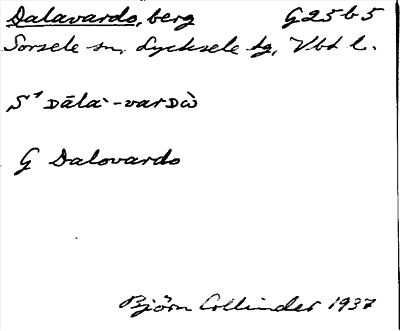 Dalavardo, berg G25b5
Sorsele sn, Lycksele tg, Vbt l.
S¹ Dāla·-varDȯ̀
G Dalovardo
Björn Collinder 1937